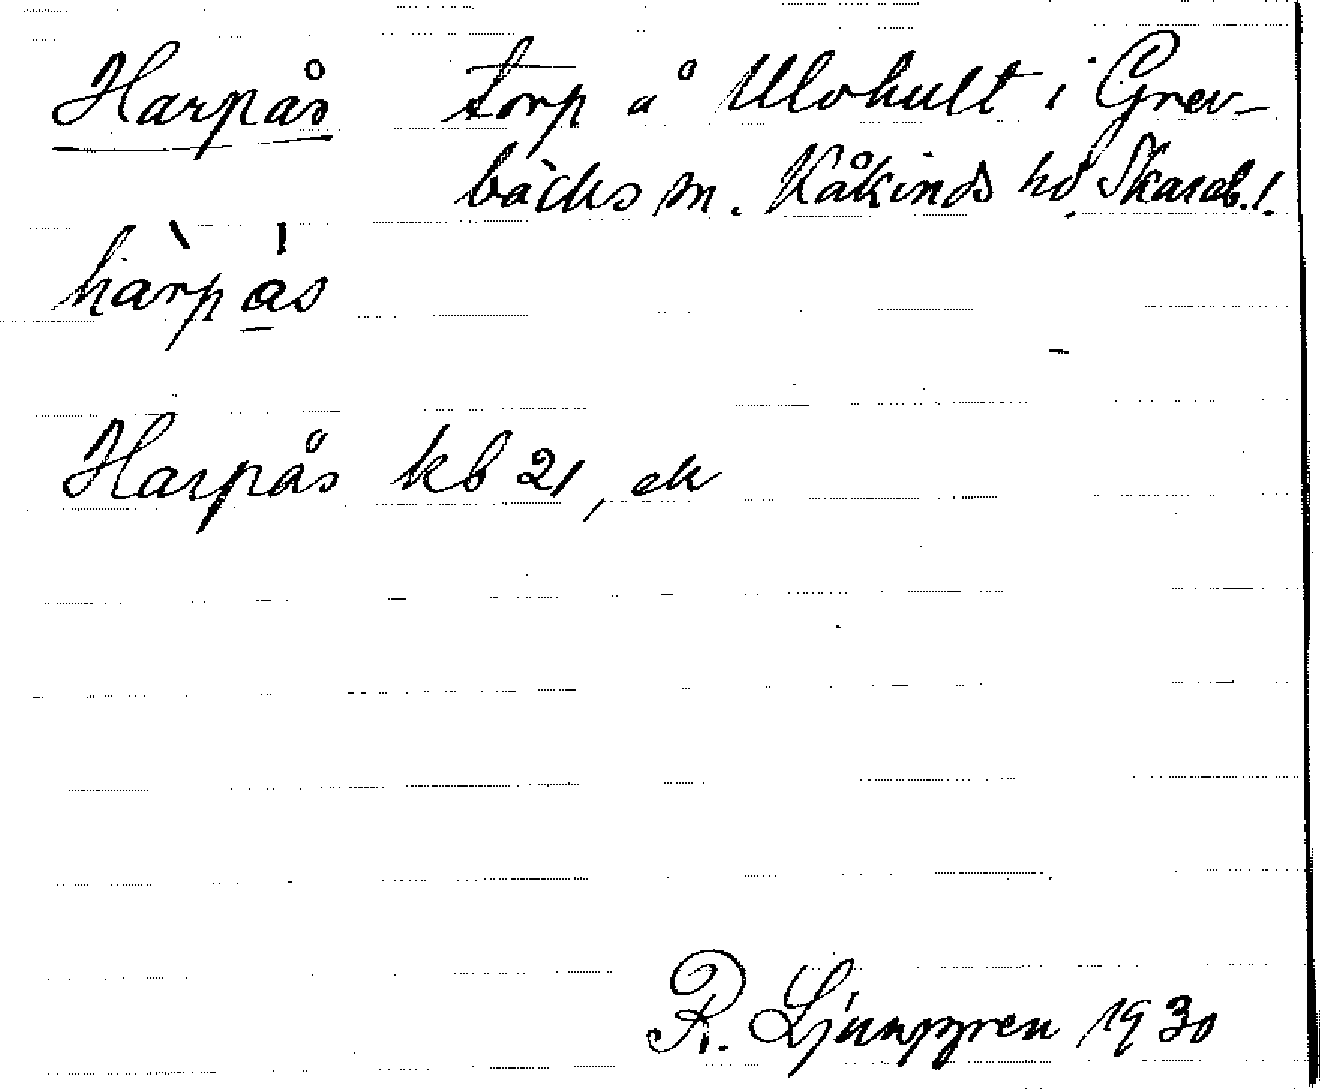 Harpås torp å Ulvhult i Grev-
bäcks sn. Kåkinds hd. Skarab. l.
hàrpás
Harpås kb 21, ek
R. Ljunggren 1930